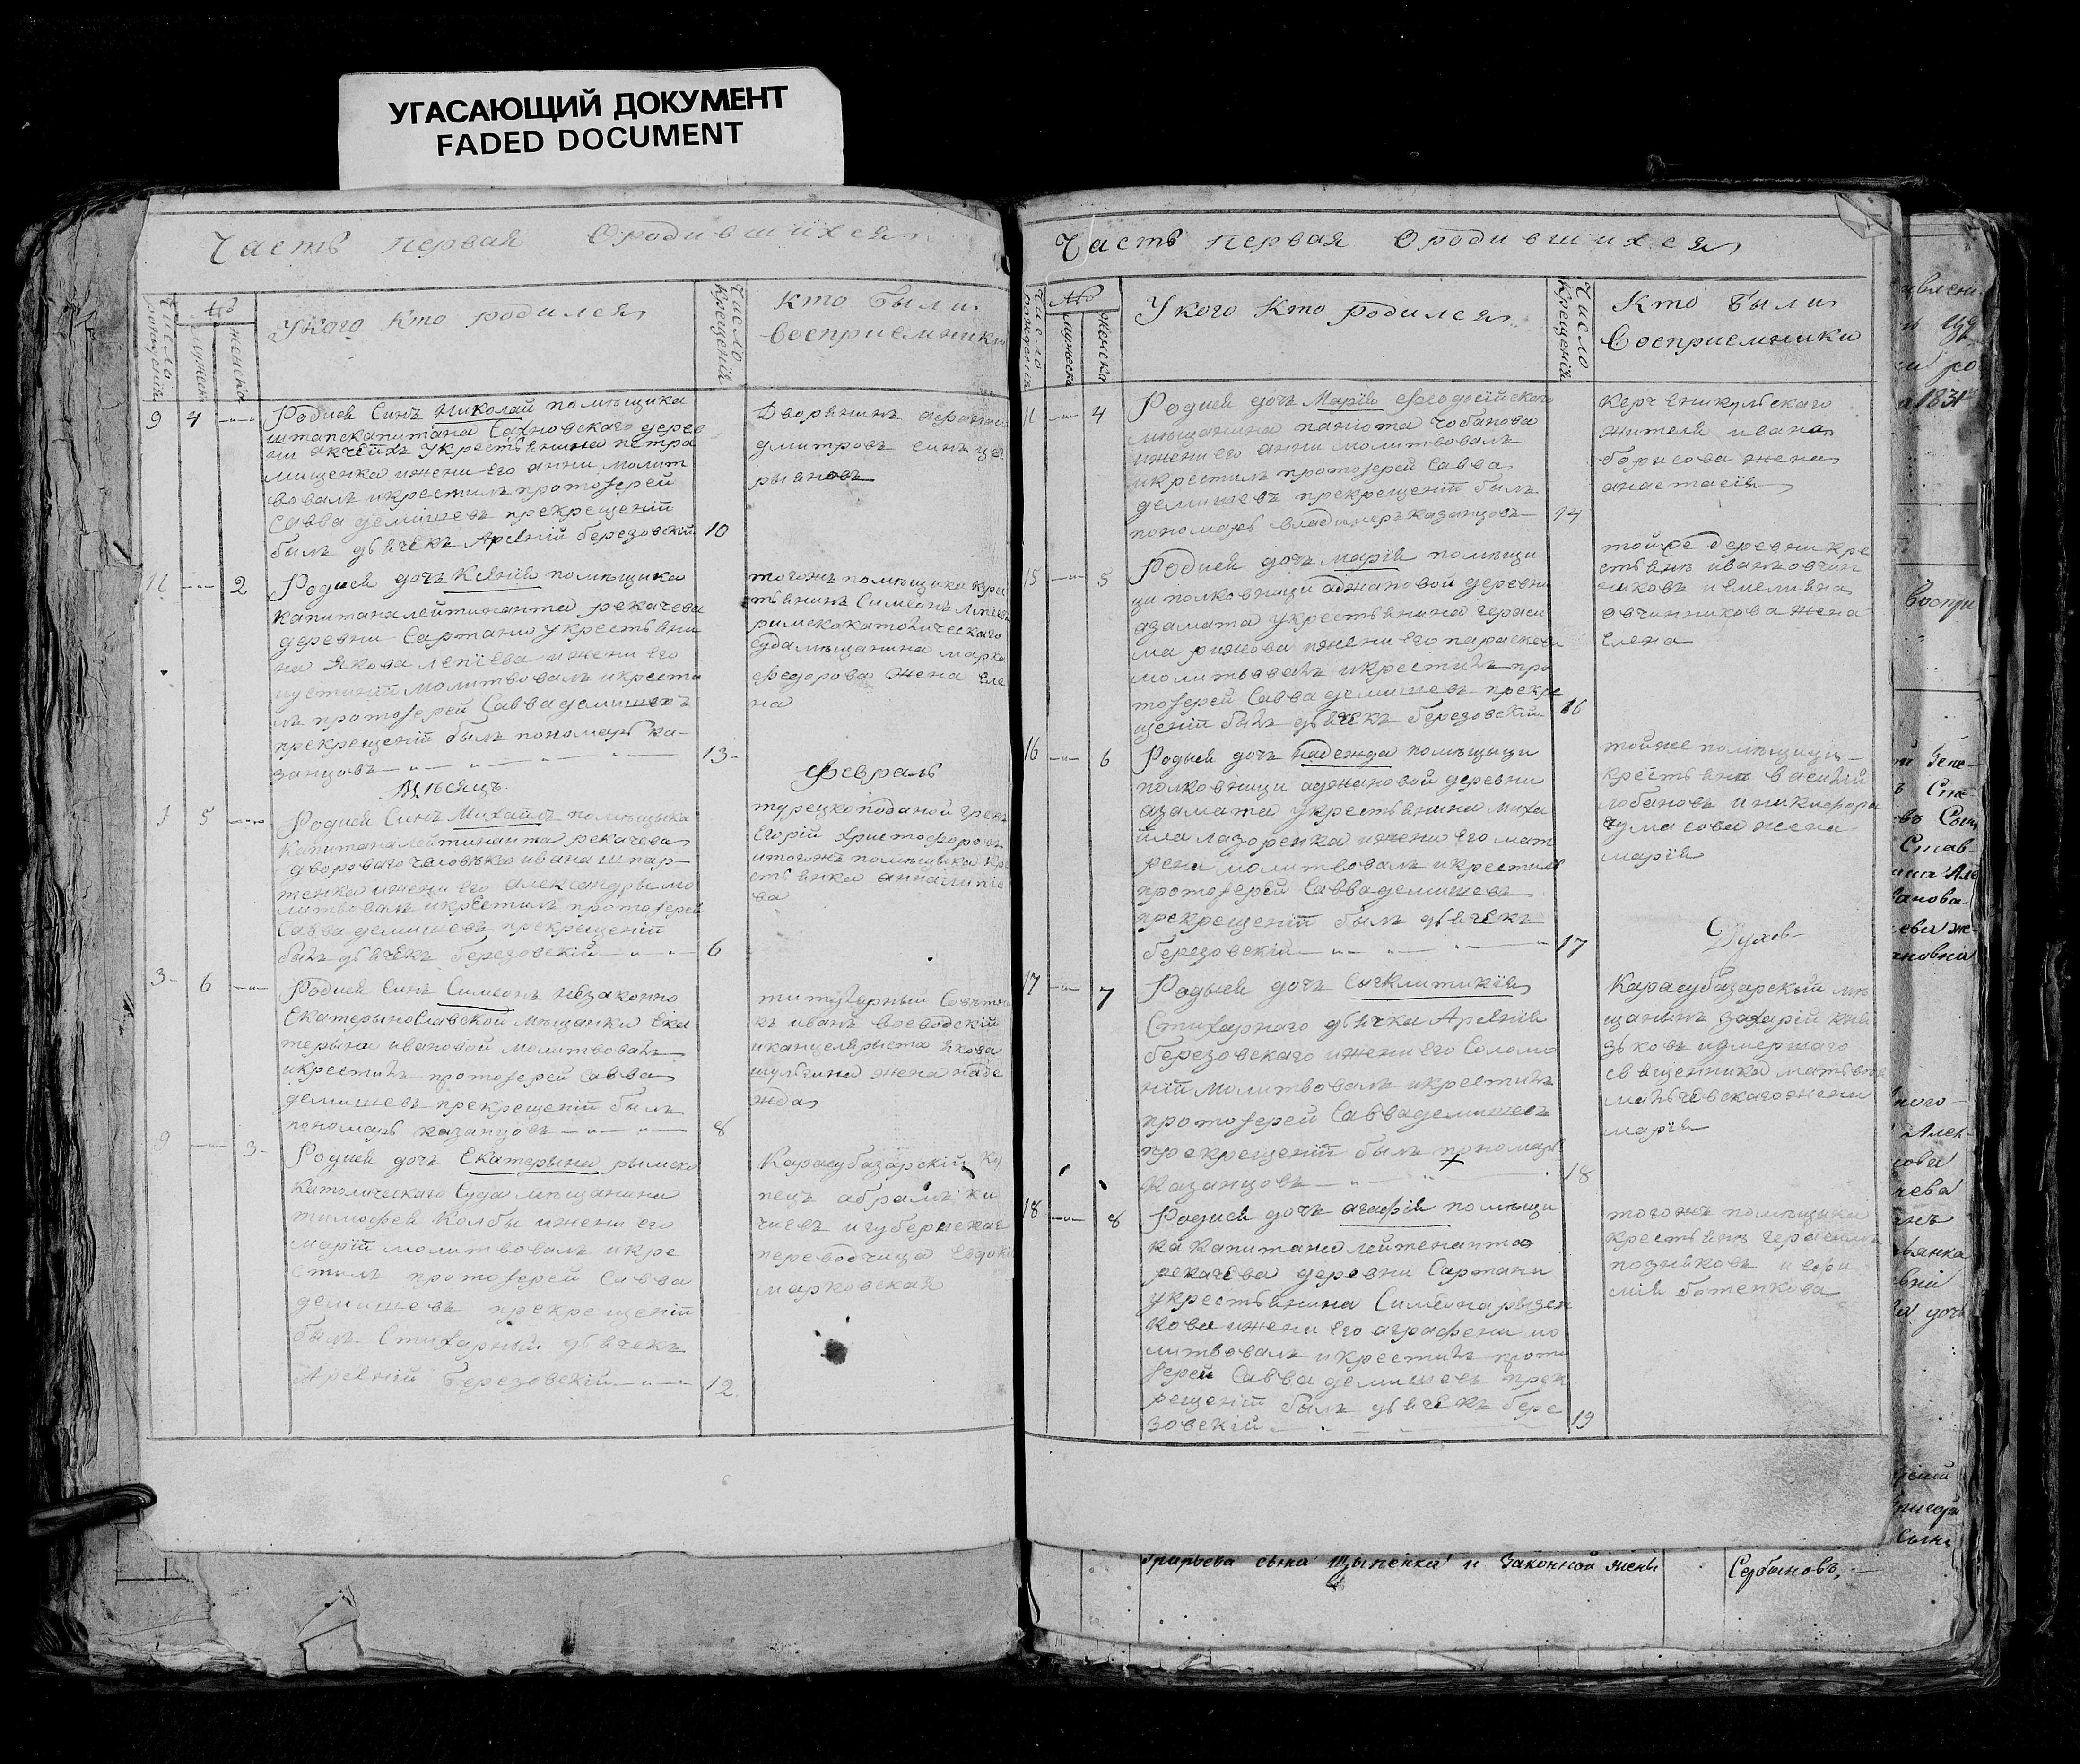 УГАСАЮЩИЙ ДОКУМЕНТ
FADED DOCUMENT
Часть первая О родившихся
Число рождения
№
мужеск
женска
У кого кто родился
Число крещения
Кто были
восприемники
9 4
Родися Синъ Николай помѣщика
штапскапитана Сахновского дерев
ни акчеихъ укрестьянина петра
мищенка ижени его анни молит
вовалъ икрестилъ протоіерей
Савва демишевъ прекрещеніи
былъ дьячекъ Арсеній березовский 10
Дворянинъ
дмитровъ синъ
11 2
Родися дочъ Ксенія помѣщика
капитаналейтинанта рекачева
деревни Сартани укрестьяни
на Якова лепіева ижени его
иустиніи молитвовалъ икрести
лъ протоіерей Савва демишевъ
прекрещеніи былъ пономарь ка-
занцовъ 13
тогожъ помѣщика крес
тьянинъ Симеонъ
римскокатолическаго
Суда мѣщанина марка
федорова жена еле
на
Мѣсяцъ
февраль
1 5
Родися Синъ Михаилъ помѣщика
Капитаналейтинанта рекачева
двороваго человѣка ивана шпар-
тенка ижени его александры мо
литвовалъ икрестилъ протоіерей
Савва демишевъ прекрещеніи
былъ дьячекъ березовскій 6
турецкоподаной грекъ
Егорій христофоровъ
итогожъ помѣщика кре
стьянка анна
ва
3 6
Родися Синъ Симеонъ незаконно
Екатеринославской мѣщанки Ека
терыни ивановой молитвовалъ
икрестилъ протоіерей Савва
демишевъ прекрещеніи былъ
пономарь казанцовъ 8
титулярный Совѣтни
къ иванъ воеводскій
иканцелярыста Якова
шульгина жена наде
жда
9 3
Родися дочъ Екатерына рымско
Католическаго Суда мѣщанина
тимофея Колбы ижени его
маріи молитвовалъ икре
стилъ протоіерей Савва
демишевъ прекрещеніи
былъ Стихарный дьячекъ
Арсеній Березовскій 12
Карасубазарскій ку
пецъ абрамъ ки
чиевъ игубернскаг
переводчица Евдокі
марковская
Часть первая О родившихся
Число рождения
№
мужеска
женска
У кого кто родился
Число крещенія
Кто были
восприемники
11 4
Родися дочъ Марія феодосійского
мѣщанина панаіота чобанова
ижени его анни молитвовалъ
икрестилъ протоіерей Савва
демишевъ прекрещеніи былъ
пономарь владимеръ казанцовъ 14
керченикульского
жителя ивана
борисова жена
анастасія
15 5
Родися дочъ марія помѣщи
ци полковници аджановой деревни
азамата укрестьянина гераси
ма рижова ижени его параскеви
молитвовалъ икрестилъ про
тоіерей Савва демишевъ прекре
щеніи былъ дьячекъ березовскій 16
тойже деревни кре
стьянъ иванъ овчин
никовъ иемелияна
овчинникова жена
елена
16 6
Родися дочъ надежда помѣщици
полковници аджановой деревни
азамата укрестьянина миха
йла лазоренка ижени его мат
рени молитвовалъ икрестилъ
протоіерей Савва демишевъ
прекрещеніи былъ дьячекъ
березовскій 17
тойже помѣщици
крестьянъ василій
лобановъ иникифора
чумасова жена
марія
Духов-
17 7
Родыся дочъ Сигклитикія
Стихарного дьячка Арсенія
березовскаго ижени его Соломо
ніи молитвовалъ икрестилъ
протоіерей Савва демишевъ
прекрещеніи былъ пономарь
казанцовъ 18
Карасубазарскый мѣ
щанынъ захарій кня
зьковъ иумершаго
священника матвея
мапчевскаго жена
марія
18 8
Родися дочъ агафія помѣщи
ка капитана лейтенанта
рекачева деревни Сартани
укрестьянина Симеона рызен
кова ижени его аграфени мо
литвовалъ икрестилъ прото
іерей Савва демишевъ прек
рещеніи былъ дьячекъ бере
зовскій 19
тогожъ помѣщика
крестьянъ герасимъ
позняковъ и ефи
мія ботенкова
Григорьева сына Щыпенка и законной жены
Сербыновъ,
1831
воспри